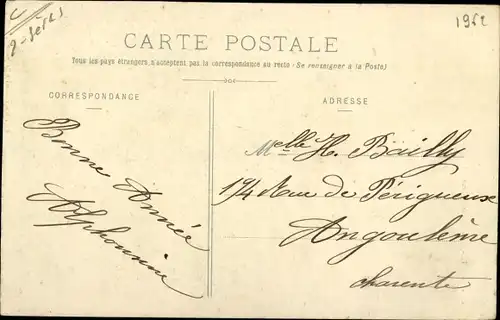 1952
2-Sèvres
CARTE POSTALE
Tous les pays étrangers n'acceptent pas la correspondance au recto (Se renseigner à la Poste)
CORRESPONDANCE
ADRESSE
Bonne Année
Alphonsine
Melle H. Bailly
174 Rue de Périgueux
Angoulême
charente